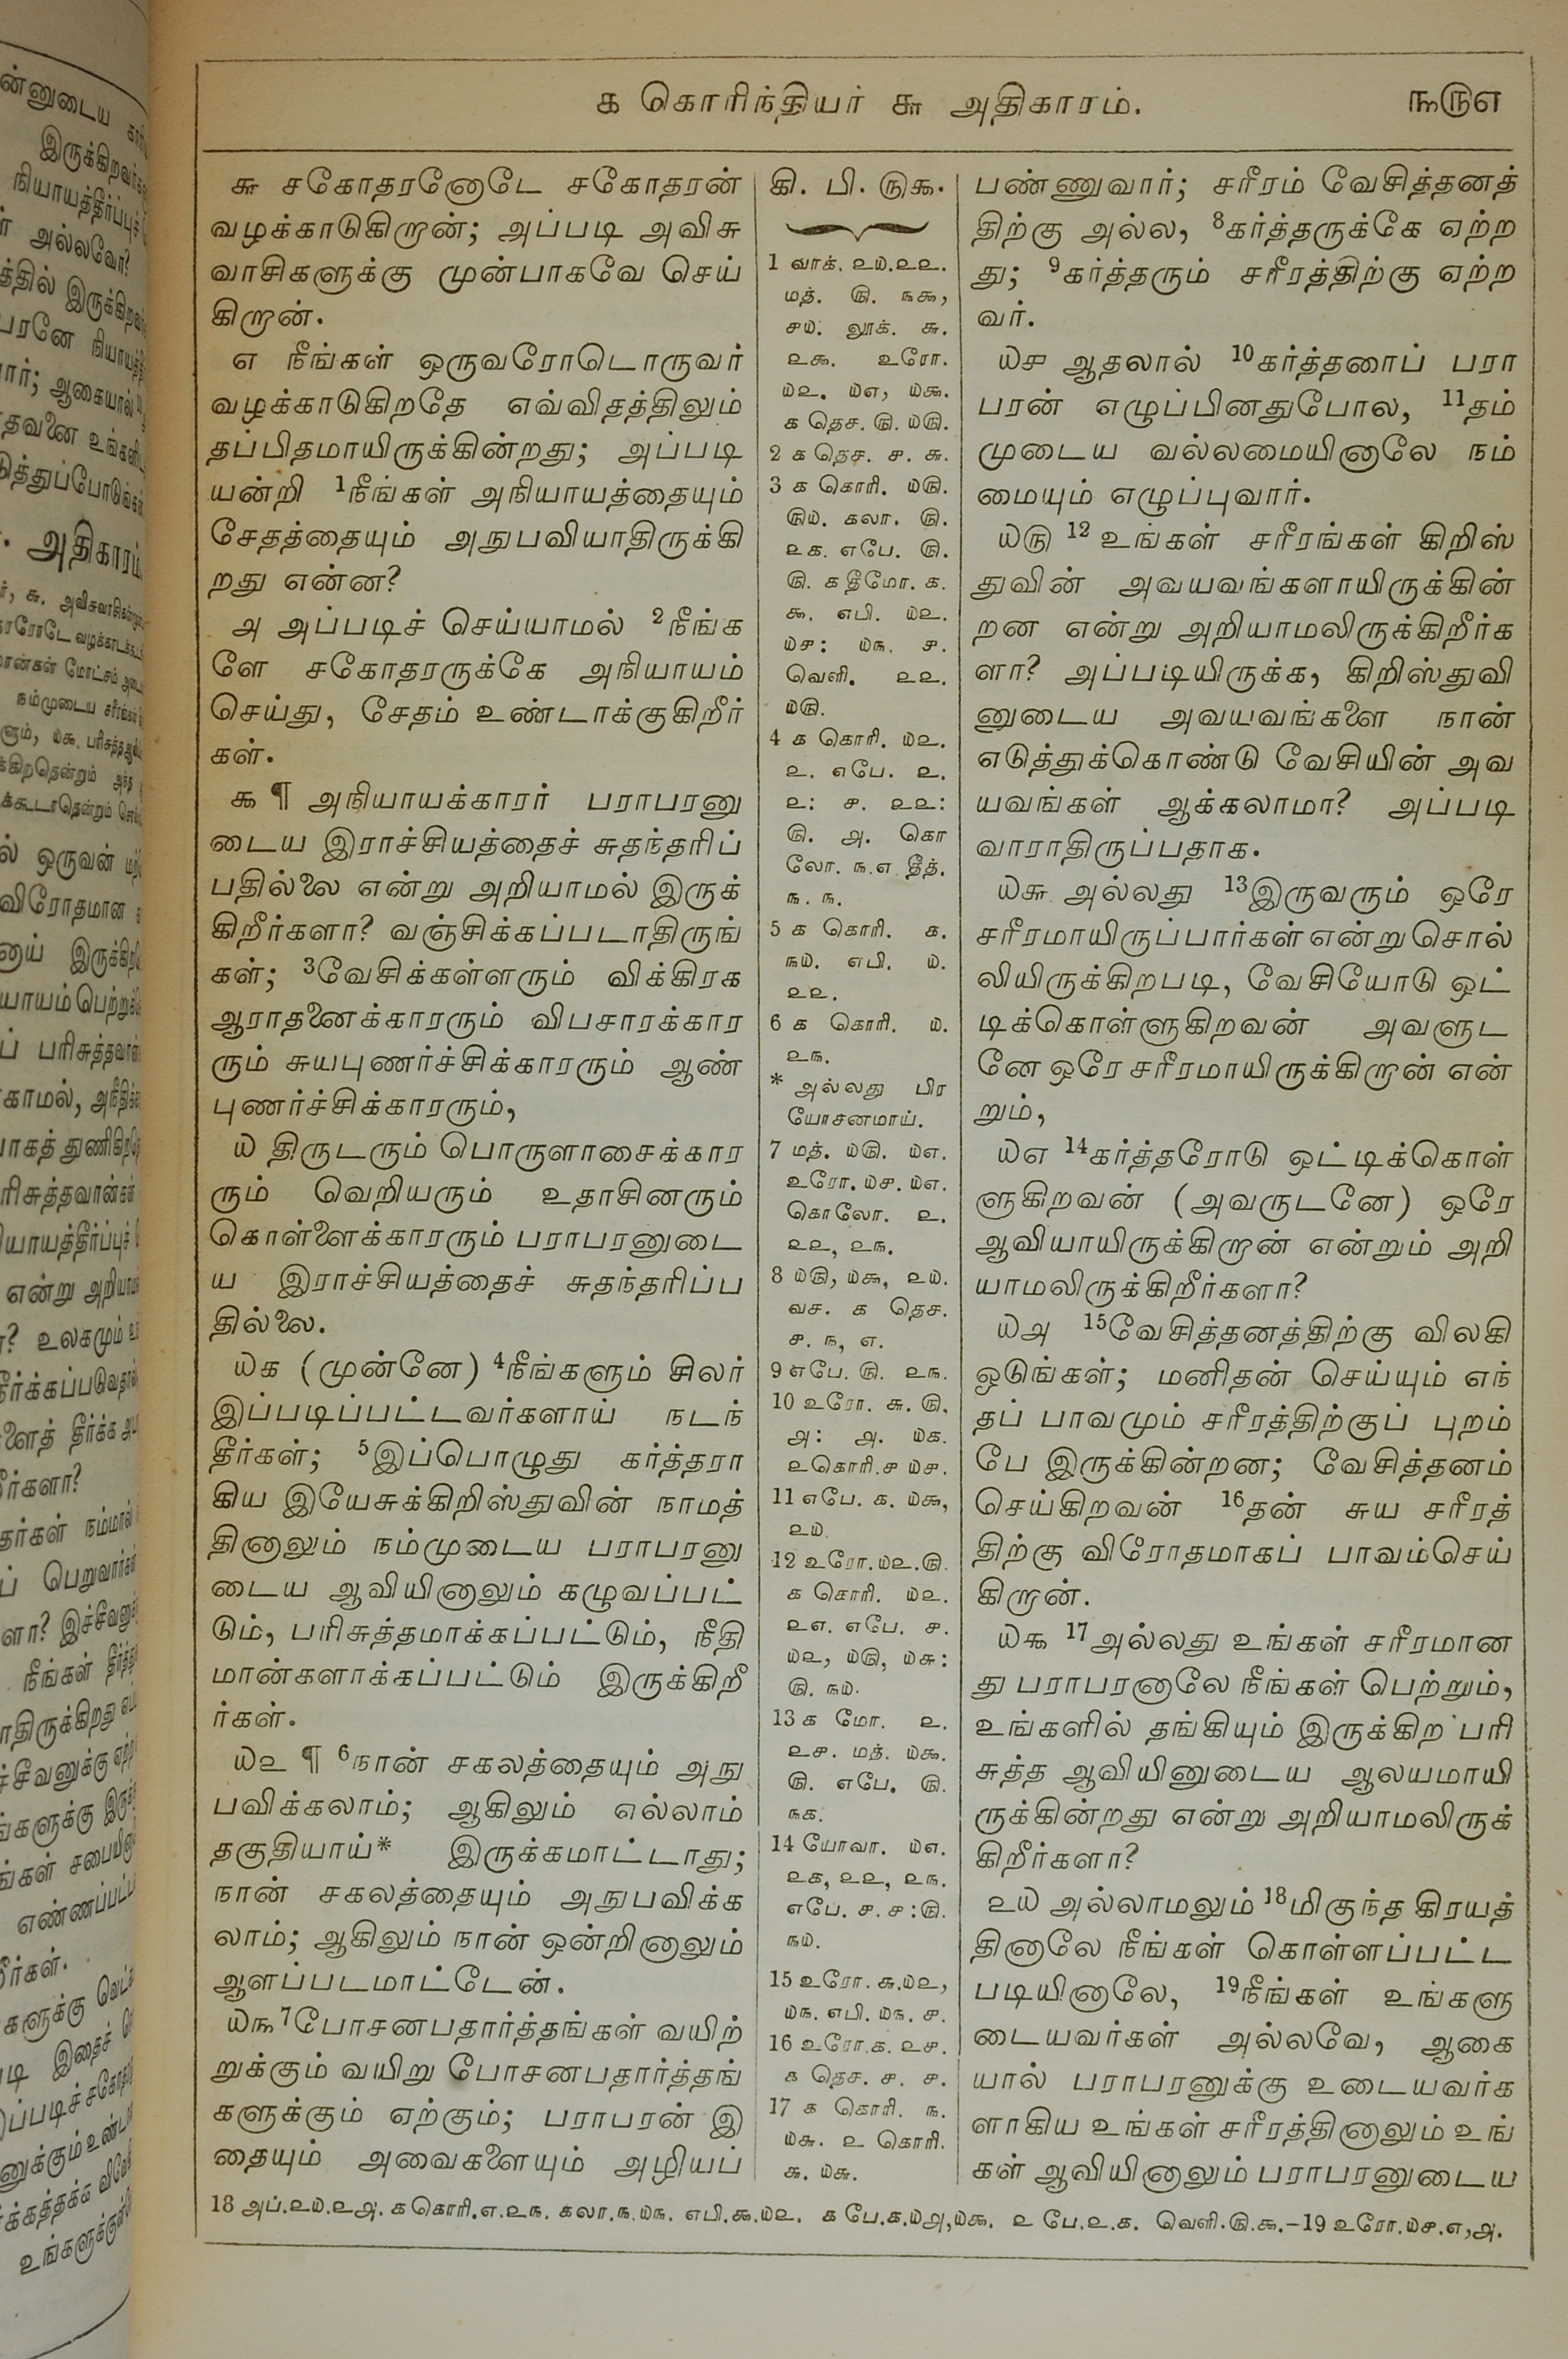 ௧ கொரிந்தியர் ௬ அதிகாரம்.
௩௫௭
௬ சகோதரனோடே சகோதரன்
வழக்காடுகிறான்; அப்படி அவிசு
வாசிகளுக்கு முன்பாகவே செய்
கிறான்.
௭ நீங்கள் ஒருவரோடொருவர்
வழக்காடுகிறதே எவ்விதத்திலும்
தப்பிதமாயிருக்கின்றது; அப்படி
யன்றி 1நீங்கள் அநியாயத்தையும்
சேதத்தையும் அநுபவியாதிருக்கி
றது என்ன?
௮ அப்படிச் செய்யாமல் 2நீங்க
ளே சகோதரருக்கே அநியாயம்
செய்து, சேதம் உண்டாக்குகிறீர்
கள்.
௯ ¶ அநியாயக்காரர் பராபரனு
டைய இராச்சியத்தைச் சுதந்தரிப்
பதில்லை என்று அறியாமல் இருக்
கிறீர்களா? வஞ்சிக்கப்படாதிருங்
கள்; 3வேசிக்கள்ளரும் விக்கிரக
ஆராதனைக்காரரும் விபசாரக்கார
ரும் சுயபுணர்ச்சிக்காரரும் ஆண்
புணர்ச்சிக்காரரும்,
௰ திருடரும் பொருளாசைக்கார
ரும் வெறியரும் உதாசினரும்
கொள்ளைக்காரரும் பராபரனுடை
ய இராச்சியத்தைச் சுதந்தரிப்ப
தில்லை.
௰௧ (முன்னே) 4நீங்களும் சிலர்
இப்படிப்பட்டவர்களாய் நடந்
தீர்கள்; 5இப்பொழுது கர்த்தரா
கிய இயேசுக்கிறிஸ்துவின் நாமத்
தினாலும் நம்முடைய பராபரனு
டைய ஆவியினாலும் கழுவப்பட்
டும், பரிசுத்தமாக்கப்பட்டும், நீதி
மான்களாக்கப்பட்டும் இருக்கிறீ
ர்கள்.
௰௨ ¶ 6நான் சகலத்தையும் அநு
பவிக்கலாம்; ஆகிலும் எல்லாம்
தகுதியாய்* இருக்கமாட்டாது;
நான் சகலத்தையும் அநுபவிக்க
லாம்; ஆகிலும் நான் ஒன்றினாலும்
ஆளப்படமாட்டேன்.
௰௩ 7போசனபதார்த்தங்கள் வயிற்
றுக்கும் வயிறு போசனபதார்த்தங்
களுக்கும் ஏற்கும்; பராபரன் இ
தையும் அவைகளையும் அழியப்
கி. பி. ௫௯.
1 வாக். ௨௰.௨௨.
மத். ௫. ௩௯,
௪௰. லூக். ௬.
௨௯. உரோ.
௰௨. ௰௭, ௰௯.
௧ தெச. ௫. ௰௫.
2 ௧ தெச. ௪. ௬.
3 ௧ கொரி. ௰௫.
௫௰. கலா. ௫.
௨௧. எபே. ௫.
௫. ௧ தீமோ. ௧.
௯. எபி. ௰௨.
௰௪: ௰௩. ௪.
வெளி. ௨௨.
௰௫.
4 ௧ கொரி. ௰௨.
௨. எபே. ௨.
௨: ௪. ௨௨:
௫. ௮. கொ
லோ. ௩.௭ தீத்.
௩. ௩.
5 ௧ கொரி. ௧.
௩௰. எபி. ௰.
௨௨.
6 ௧ கொரி. ௰.
௨௩.
* அல்லது பிர
யோசனமாய்.
7 மத். ௰௫. ௰௭.
உரோ. ௰௪. ௰௭.
கொலோ. ௨.
௨௨, ௨௩.
8 ௰௫, ௰௯, ௨௰.
வச. ௧ தெச.
௪. ௩, ௭.
9 எபே. ௫. ௨௩.
10 உரோ. ௬. ௫,
௮: ௮. ௰௧.
௨கொரி.௪ ௰௪.
11 எபே. ௧. ௰௯,
௨௰.
12 உரோ.௰௨.௫.
௧ கொரி. ௰௨.
௨௭. எபே. ௪.
௰௨, ௰௫, ௰௬:
௫. ௩௰.
13 ௧ மோ. ௨.
௨௪. மத். ௰௯.
௫. எபே. ௫.
௩௧.
14 யோவா. ௰௭.
௨௧, ௨௨, ௨௩.
எபே. ௪. ௪ :௫.
௩௰.
15 உரோ. ௬.௰௨,
௰௩. எபி. ௰௩. ௪.
16 உரோ.௧. ௨௪.
௧ தெச. ௪. ௪.
17 ௧ கொரி. ௩.
௰௬. ௨ கொரி.
௬. ௰௬.
பண்ணுவார்; சரீரம் வேசித்தனத்
திற்கு அல்ல, 8கர்த்தருக்கே ஏற்ற
து; 9கர்த்தரும் சரீரத்திற்கு ஏற்ற
வர்.
௰௪ ஆதலால் 10கர்த்தரைப் பரா
பரன் எழுப்பினதுபோல, 11தம்
முடைய வல்லமையினாலே நம்
மையும் எழுப்புவார்.
௰௫ 12 உங்கள் சரீரங்கள் கிறிஸ்
துவின் அவயவங்களாயிருக்கின்
றன என்று அறியாமலிருக்கிறீர்க
ளா? அப்படியிருக்க, கிறிஸ்துவி
னுடைய அவயவங்களை நான்
எடுத்துக்கொண்டு வேசியின் அவ
யவங்கள் ஆக்கலாமா? அப்படி
வாராதிருப்பதாக.
௰௬ அல்லது 13இருவரும் ஒரே
சரீரமாயிருப்பார்கள் என்று சொல்
லியிருக்கிறபடி, வேசியோடு ஒட்
டிக்கொள்ளுகிறவன் அவளுட
னே ஒரே சரீரமாயிருக்கிறான் என்
றும்,
௰௭ 14கர்த்தரோடு ஒட்டிக்கொள்
ளுகிறவன் (அவருடனே) ஒரே
ஆவியாயிருக்கிறான் என்றும் அறி
யாமலிருக்கிறீர்களா?
௰௮ 15வேசித்தனத்திற்கு விலகி
ஓடுங்கள்; மனிதன் செய்யும் எந்
தப் பாவமும் சரீரத்திற்குப் புறம்
பே இருக்கின்றன; வேசித்தனம்
செய்கிறவன் 16தன் சுய சரீரத்
திற்கு விரோதமாகப் பாவம்செய்
கிறான்.
௰௯ 17அல்லது உங்கள் சரீரமான
து பராபரனாலே நீங்கள் பெற்றும்,
உங்களில் தங்கியும் இருக்கிற பரி
சுத்த ஆவியினுடைய ஆலயமாயி
ருக்கின்றது என்று அறியாமலிருக்
கிறீர்களா?
௨௰ அல்லாமலும் 18மிகுந்த கிரயத்
தினாலே நீங்கள் கொள்ளப்பட்ட
படியினாலே, 19நீங்கள் உங்களு
டையவர்கள் அல்லவே, ஆகை
யால் பராபரனுக்கு உடையவர்க
ளாகிய உங்கள் சரீரத்தினாலும் உங்
கள் ஆவியினாலும் பராபரனுடைய
18 அப்.௨௰.௨௮. ௧ கொரி.௭.௨௩. கலா.௩.௰௩. எபி.௯.௰௨. ௧ பே.௧.௰௮,௰௯. ௨ பே.௨.௧. வெளி.௫.௯.–19 உரோ.௰௪.௭,௮.